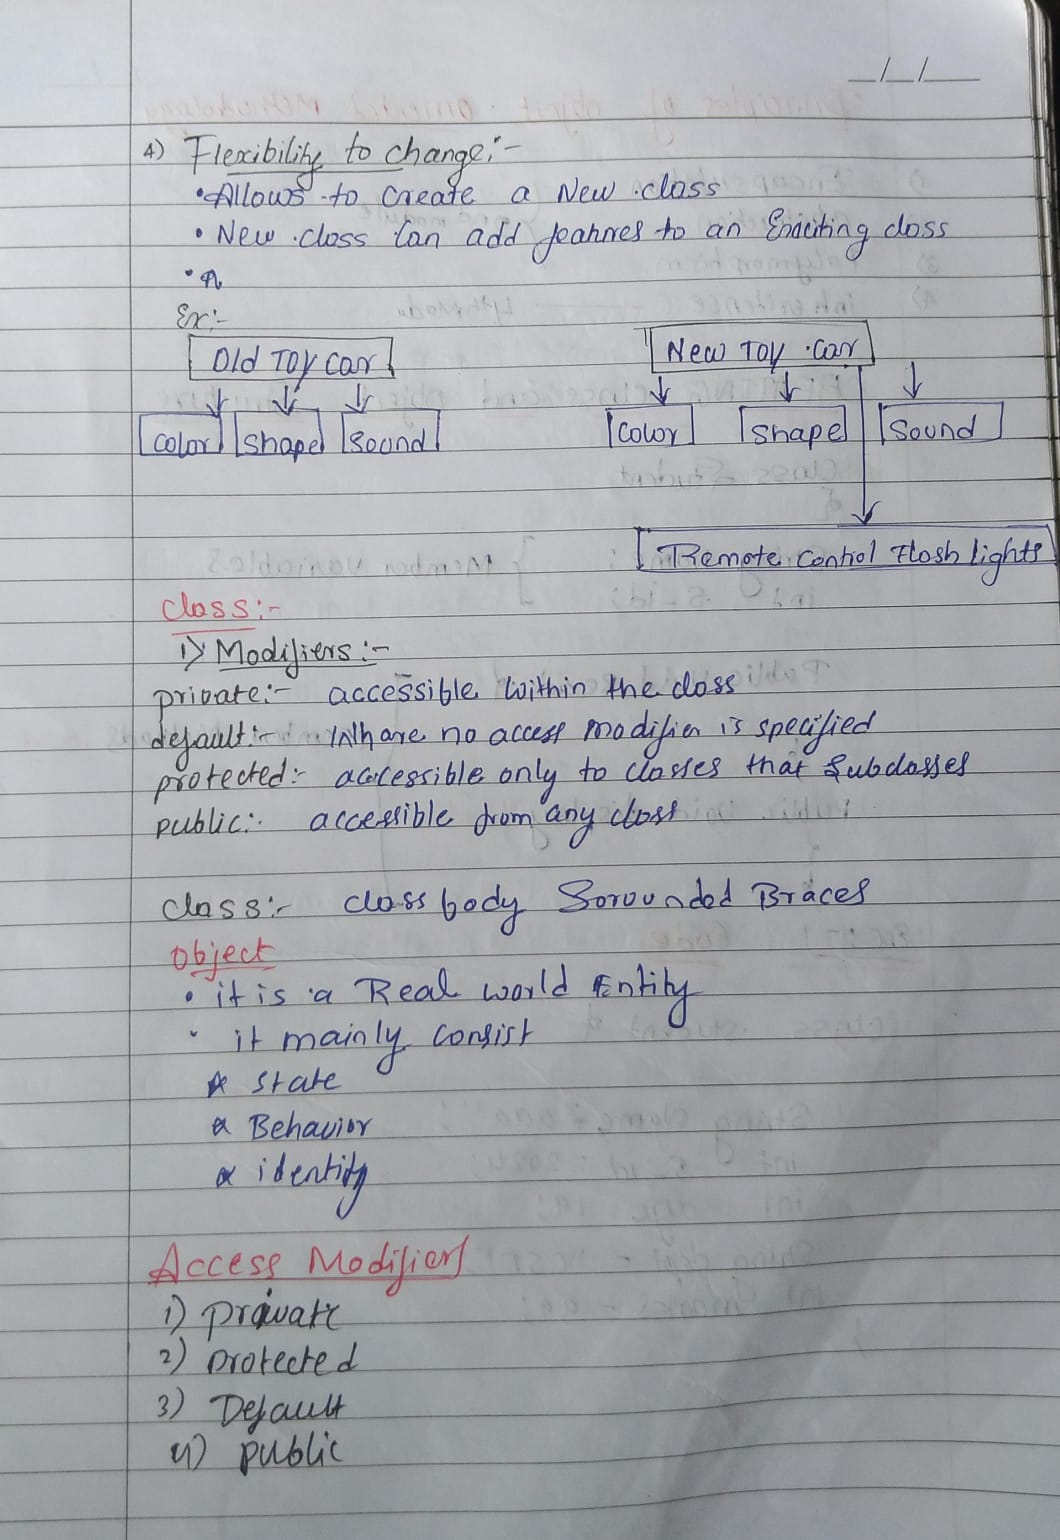 _/_/__
4) Flexibility to change:-
• Allows to Create a New class
• New class Can add feahres to an Exiciting class
•
Ex:-
Old Toy car New Toy car
Color Shape Sound Color Shape Sound
Remote Control Flash lights
class:-
1) Modifiers:-
private:- accessible within the class
default:- Whare no access modifier is specified
protected:- accessible only to classes that Subclasses
public:- accessible from any class
class:- class body Sorounded Braces
Object
• it is a Real world Entity
• it mainly consist
* State
* Behavior
* identity
Access Modifiers
1) private
2) protected
3) Default
4) public